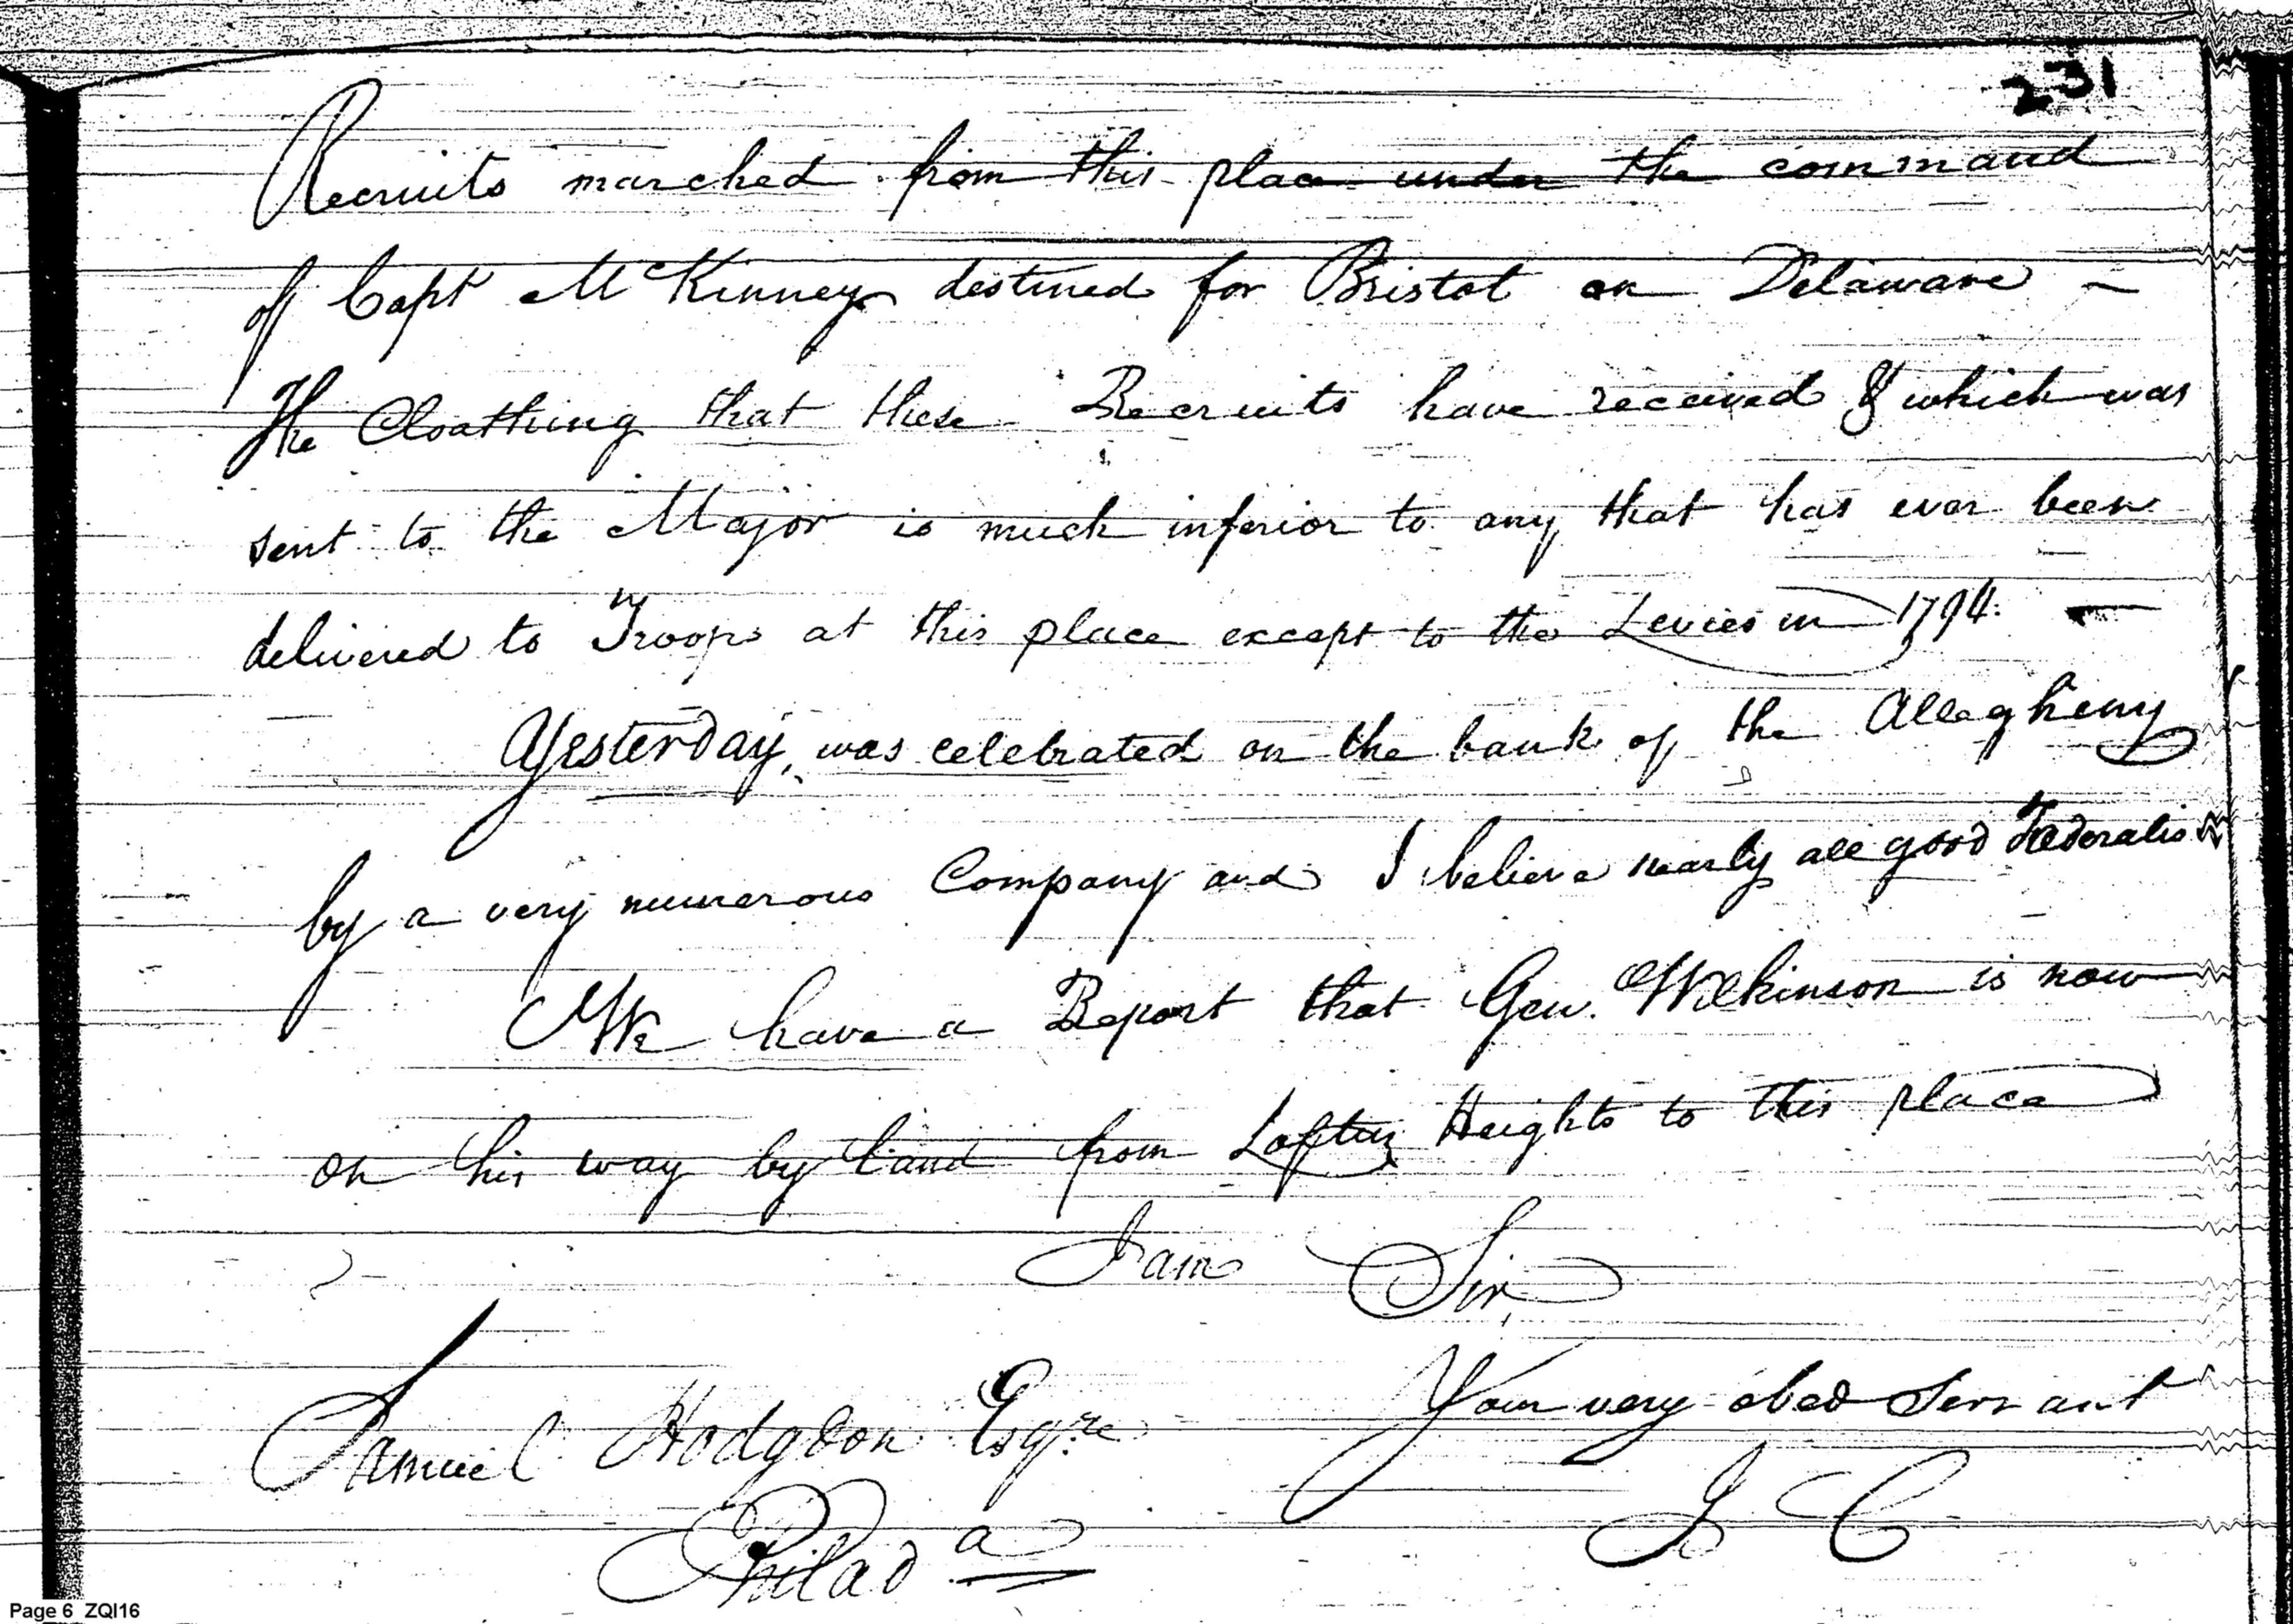 231
Recruits marched from this place under the command
of Capt McKinney destined for Bristol on Delaware ~
The Cloathing that these Recruits have received & which was
sent to the Major is much inferior to any that has ever been
delivered to Troops at this place except to the Levies in 1794.
Yesterday, was celebrated on the bank of the Allegheny
by a very numerous Company and I believe nearly all good
We have a Report that Gen. Wilkinson is now
on his way by land from Loftus Heights to this place
I am Sir,
Your very obed Servant
J C
Samuel Hodgdon Esqre
Philada
Page 6 ZQI16